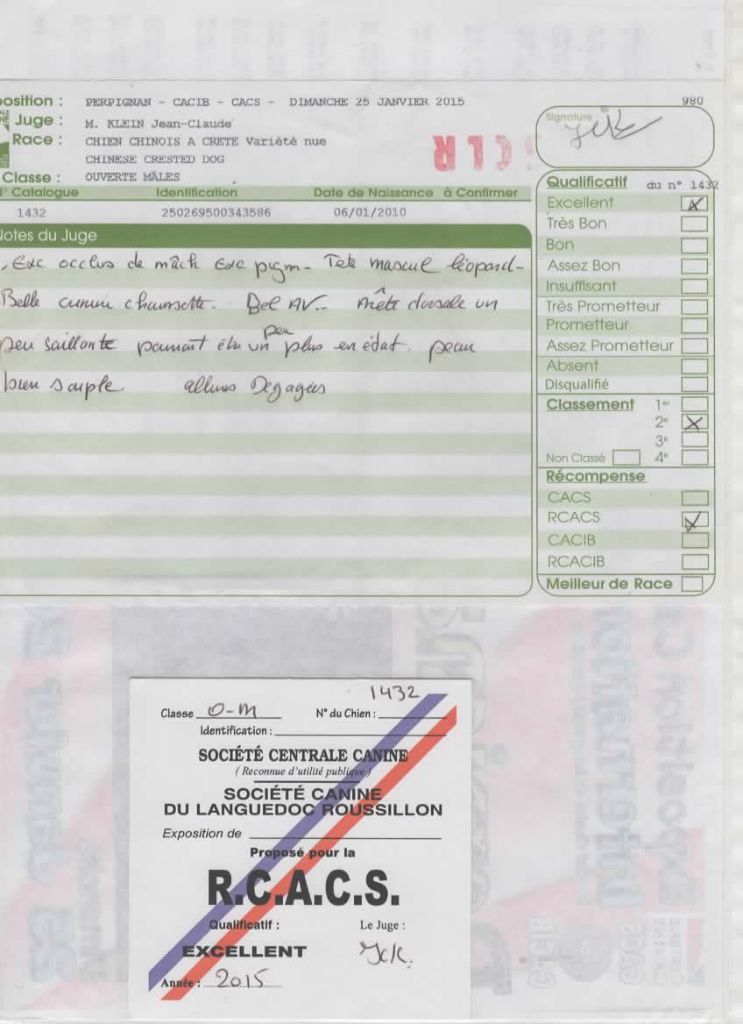 position : PERPIGNAN - CACIB - CACS - DIMANCHE 25 JANVIER 2015 980
Juge : M. KLEIN Jean-Claude
Race : CHIEN CHINOIS A CRETE Variété nue
CHINESE CRESTED DOG
Classe : OUVERTE MÂLES
N° Catalogue Identification Date de Naissance à Confirmer
1432 250269500343586 06/01/2010
Notes du Juge
Exc occlus de mâch Exc pigm - Tete mascul léopard -
Belle chaussette. Bel AV.. dorsale un
peu saillante pouvant être un peu plus en état. peau
bien souple. allures Dégagées
Signature
Qualificatif du n° 1432
Excellent
Très Bon
Bon
Assez Bon
Insuffisant
Très Prometteur
Prometteur
Assez Prometteur
Absent
Disqualifié
Classement 1er
2e
3e
Non Classé 4e
Récompense
CACS
RCACS
CACIB
RCACIB
Meilleur de Race
1432
Classe O-M N° du Chien :
Identification :
SOCIÉTÉ CENTRALE CANINE
( Reconnue d'utilité publique )
SOCIÉTÉ CANINE
DU LANGUEDOC ROUSSILLON
Exposition de
Proposé pour la
R.C.A.C.S.
Qualificatif : Le Juge :
EXCELLENT
Année : 2015